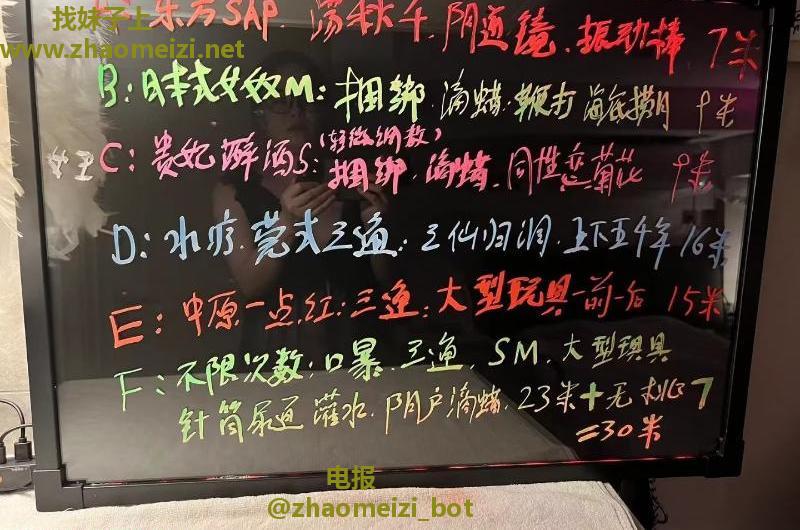 找妹子上
www.zhaomeizi.net
东方SAP,荡秋千,阴道镜,振动棒,7米
B:日本式女奴M:捆绑.滴蜡.鞭打 海底捞月 9米
C:贵妃醉酒S:(轻微调教)捆绑.滴蜡.同性恋 菊花 9米
D:水疗.莞式三通:三仙归洞.上下五千年16米
E:中原一点红:三通:大型玩具一前一后 15米
F:不限次数:口暴.三通,SM.大型玩具
针筒尿道灌水.阴户滴蜡.23米+无 7
=30米
电报
@zhaomeizi_bot